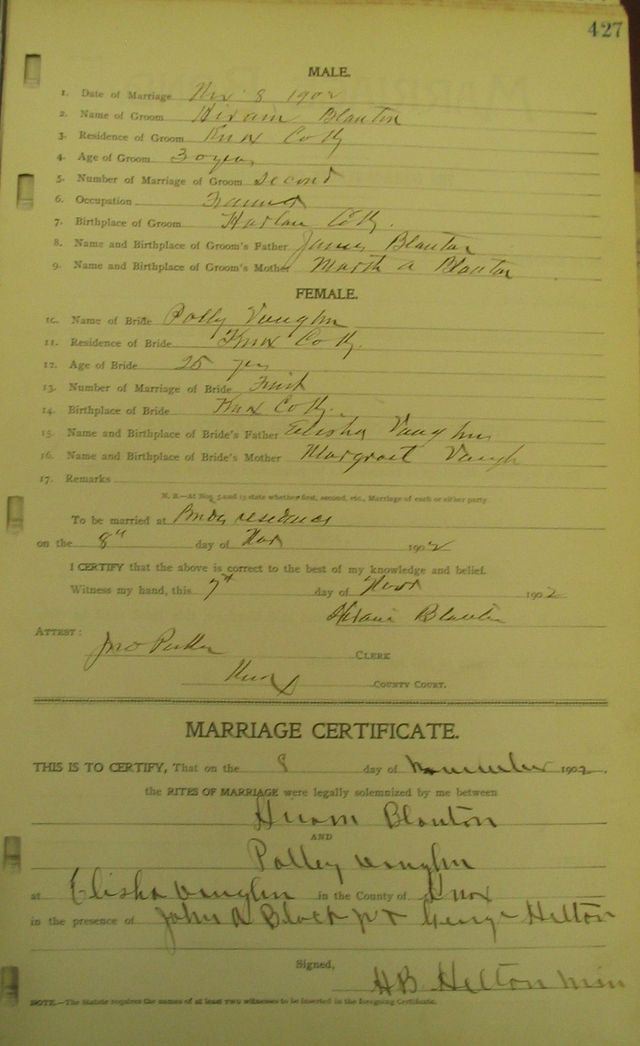 427
MALE.
1. Date of Marriage Nov 8 1902
2. Name of Groom Hiram Blanton
3. Residence of Groom Knox Co Ky
4. Age of Groom 30 years
5. Number of Marriage of Groom second
6. Occupation Farmer
7. Birthplace of Groom Harlan Co Ky.
8. Name and Birthplace of Groom's Father James Blanton
9. Name and Birthplace of Groom's Mother Marth a Blanton
FEMALE.
10. Name of Bride Polly Vaughn
11. Residence of Bride Knox Co Ky.
12. Age of Bride 25 yrs
13. Number of Marriage of Bride First
14. Birthplace of Bride Knox Co Ky.
15. Name and Birthplace of Bride's Father Elisha Vaughn
16. Name and Birthplace of Bride's Mother Margrait Vaugh
17. Remarks
N. B.—At Nos. 5 and 13 state whether first, second, etc., Marriage of each or either party.
To be married at Brides residence
on the 8" day of Nov 1902
I CERTIFY that the above is correct to the best of my knowledge and belief.
Witness my hand, this 7th day of Nov 1902
Hiram Blanton
ATTEST:
Jno Parker CLERK
Knox COUNTY COURT.
MARRIAGE CERTIFICATE.
THIS IS TO CERTIFY, That on the 8 day of November 1902.
the RITES OF MARRIAGE were legally solemnized by me between
Hiram Blanton
AND
Polley Vaughn
at Elisha Vaughn in the County of Knox
in the presence of John A Black George Helton
Signed,
H B Helton min
NOTE.—The Statute requires the names of at least two witnesses to be inserted in the foregoing Certificate.